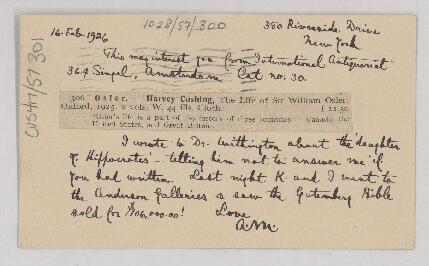 1028/57/300
CUS417/57 301
16 Feb. 1926
380 Riverside Drive
New York
This may interest you from International Antiquariat
364 Singel, Amsterdam Cat no. 30.
306 Osler. Harvey Cushing, The Life of Sir William Osler.
Oxford, 1925. 2 vols. W. 44 ills. Cloth. f 22.50
"Osler's life is a part of the history of three countries — Canada, the
United States, and Great Britain.
I wrote to Dr. Withington about the "daughter
of Hippocrates" - telling him not to answer me if
you had written. Last night K and I went to
the Anderson Galleries & saw the Gutenberg Bible
sold for $106,000.00! Love
A.M.